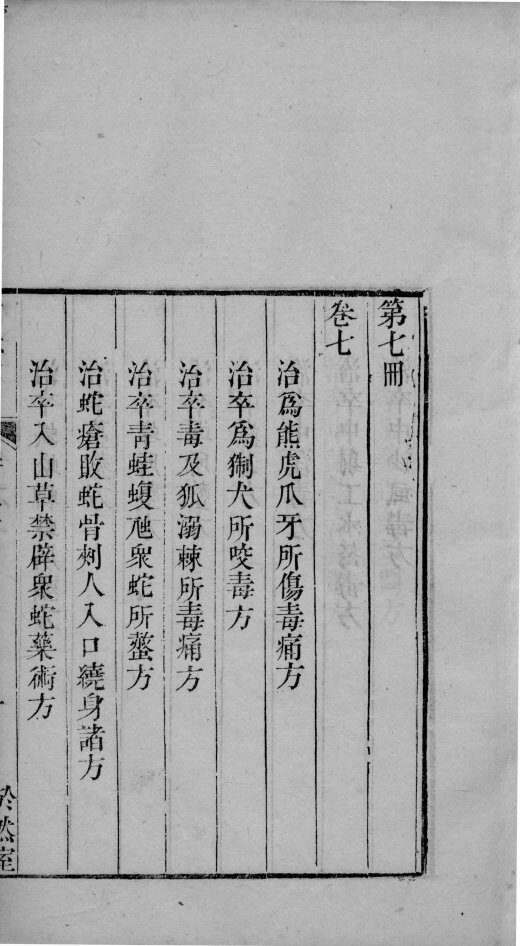 第七冊
卷七
治爲熊虎爪牙所傷毒痛方
治卒爲猘犬所咬毒方
治卒毒及狐溺棘所毒痛方
治卒靑蛙蝮虺衆蛇所螫方
治蛇瘡敗蛇骨刺人入口繞身諸方
治卒入山草禁辟衆蛇藥術方
於然室